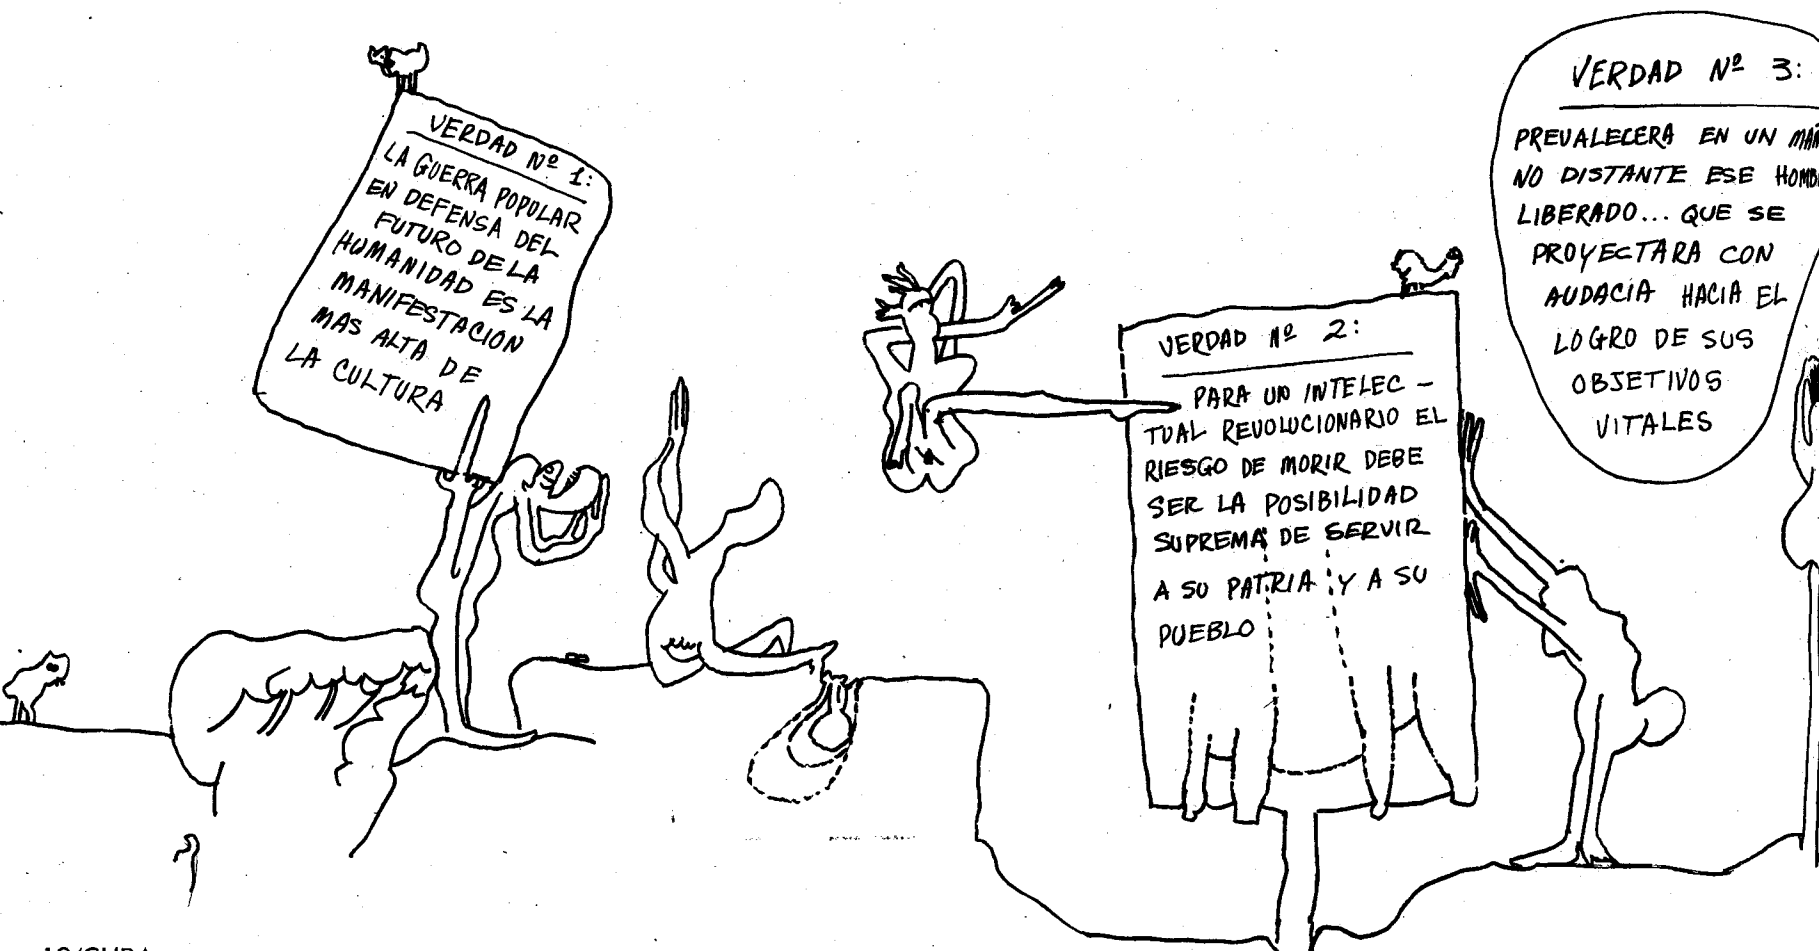 VERDAD Nº 1:
LA GUERRA POPULAR
EN DEFENSA DEL
FUTURO DE LA
HUMANIDAD ES LA
MANIFESTACION
MAS ALTA DE
LA CULTURA
VERDAD Nº 2:
PARA UN INTELEC-
TUAL REVOLUCIONARIO EL
RIESGO DE MORIR DEBE
SER LA POSIBILIDAD
SUPREMA DE SERVIR
A SU PATRIA Y A SU
PUEBLO
VERDAD Nº 3:
PREVALECERA EN UN
NO DISTANTE ESE
LIBERADO... QUE SE
PROYECTARA CON
AUDACIA HACIA EL
LOGRO DE SUS
OBJETIVOS
VITALES